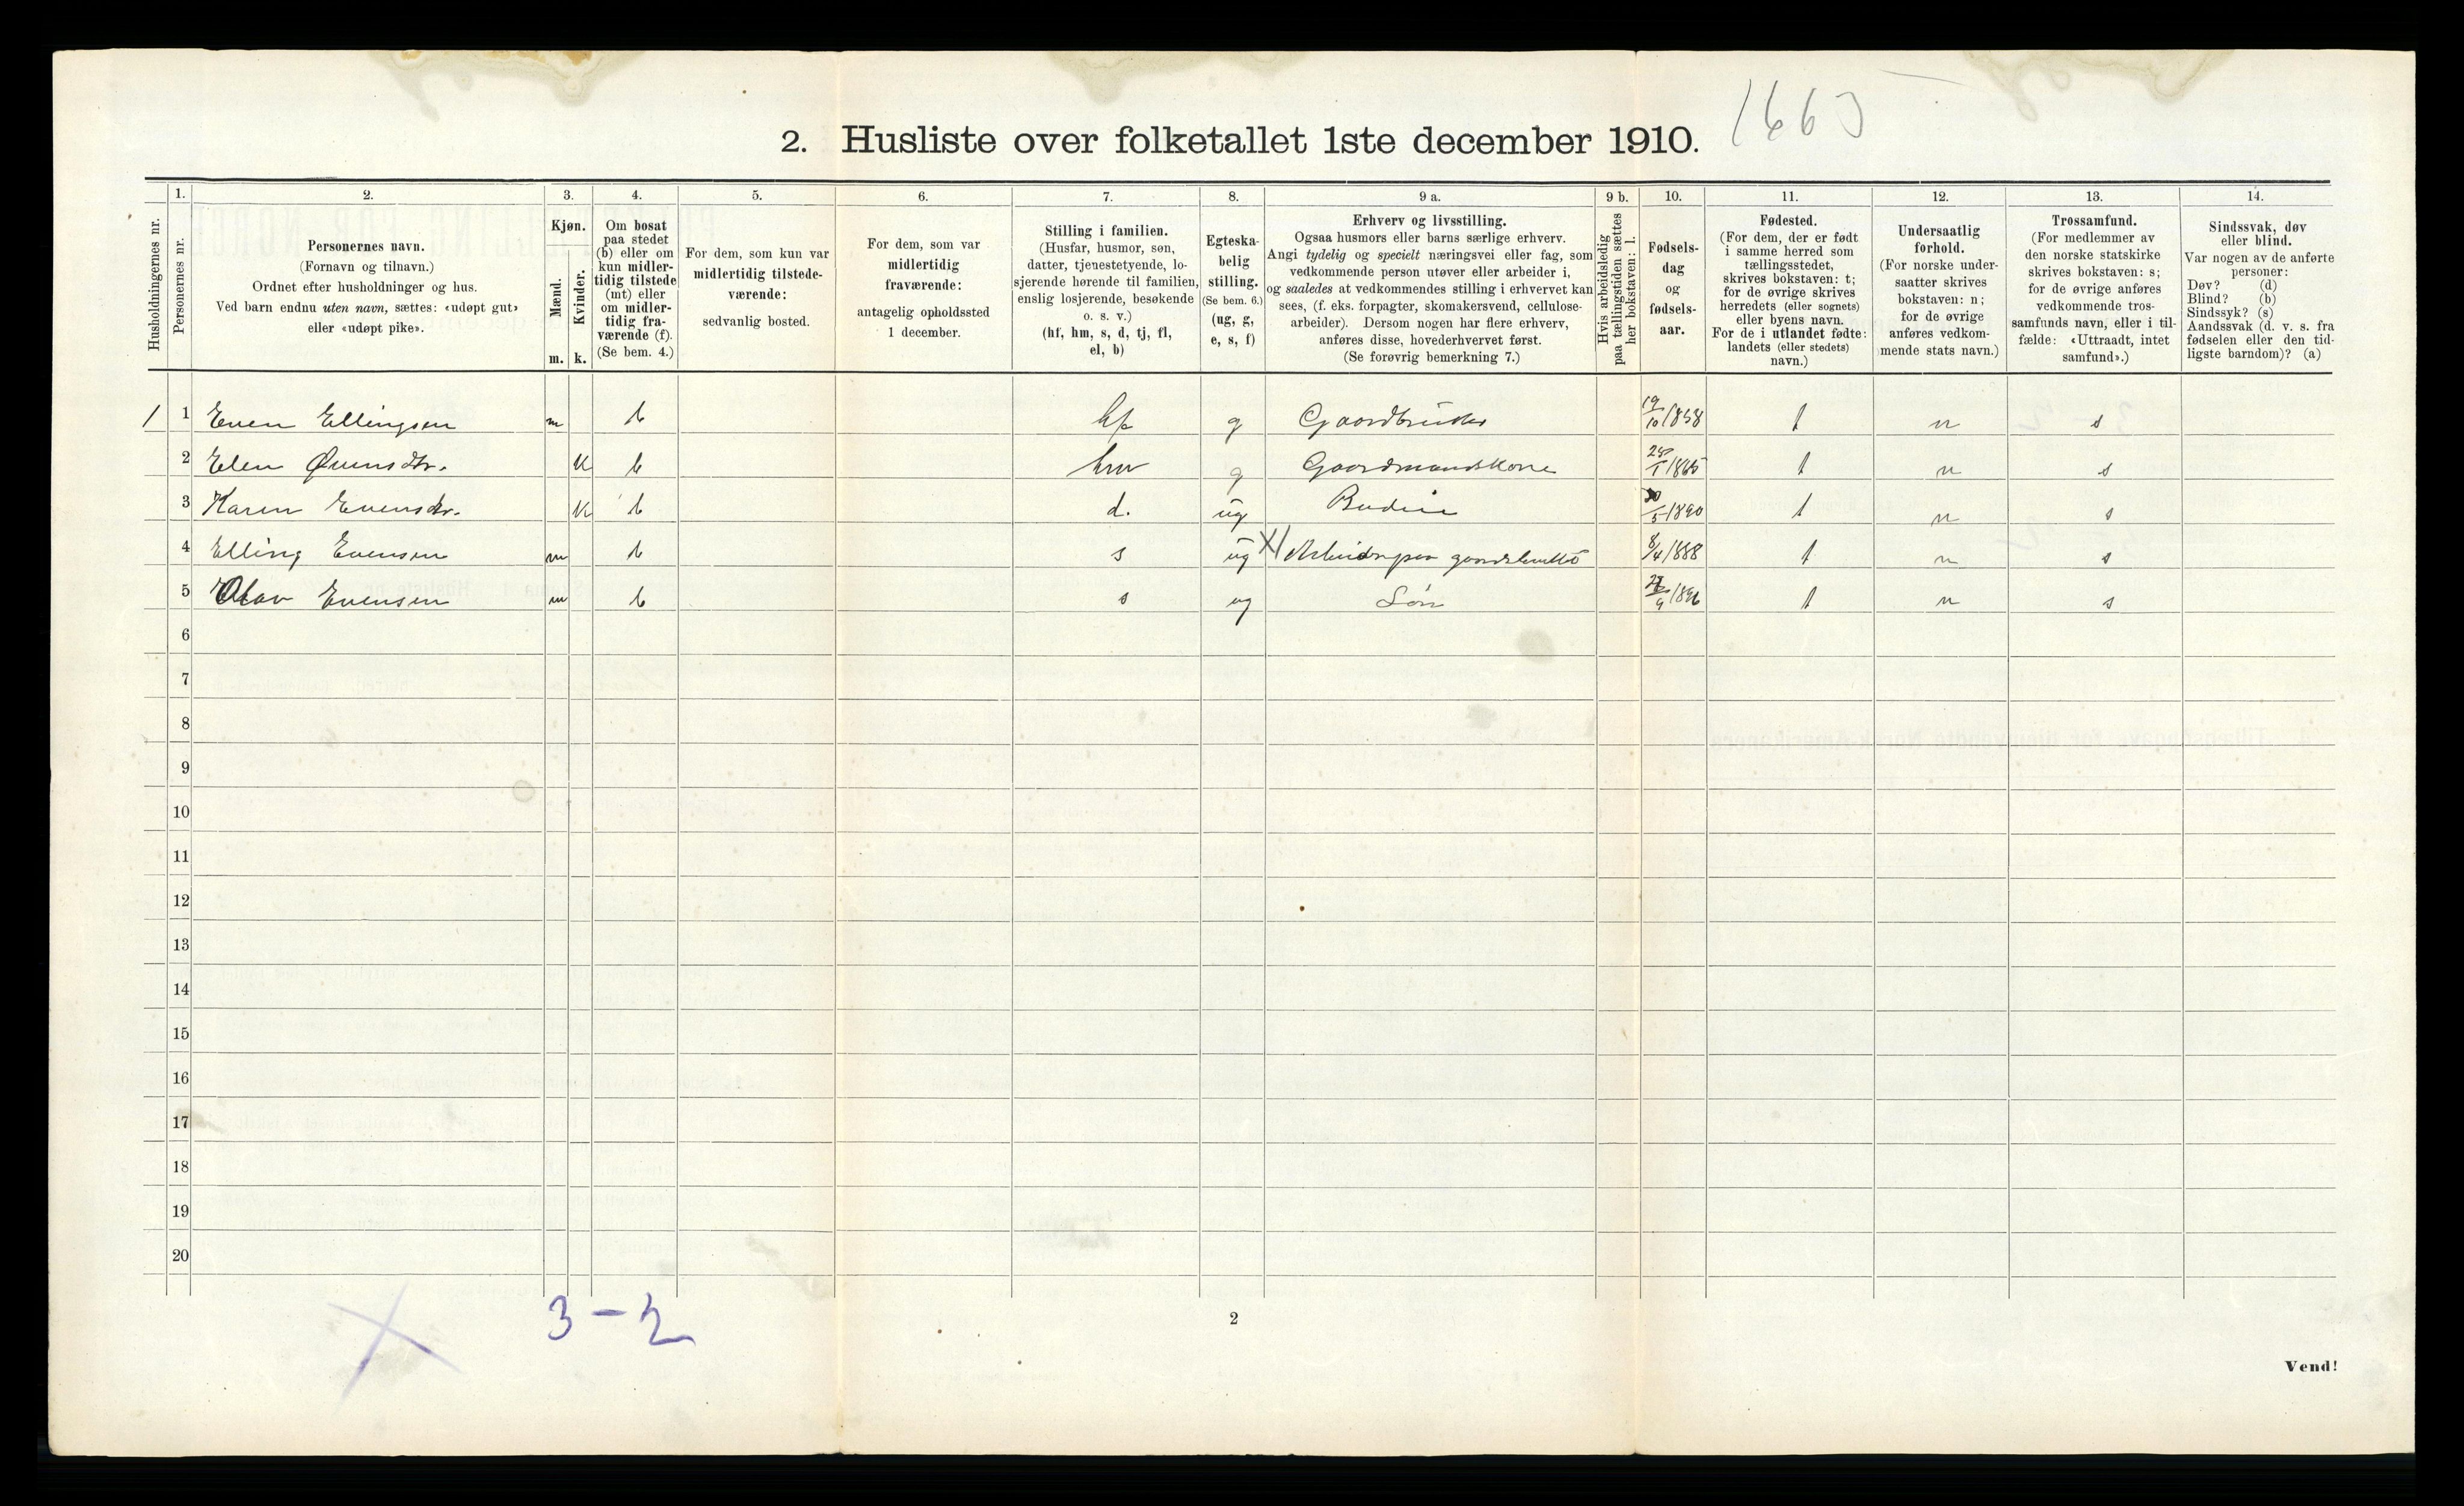 2. Husliste over folketallet 1ste december 1910.
1. 2. 3. 4. 5. 6. 7. 8. 9 a. 9 b. 10. 11. 12. 13. 14.
Husholdningernes nr.
Personernes nr.
Personernes navn.
(Fornavn og tilnavn.)
Ordnet efter husholdninger og hus.
Ved barn endnu uten navn, sættes: «udøpt gut»
eller «udøpt pike».
Kjøn.
Mænd.
Kvinder.
m. k.
Om bosat
paa stedet
(b) eller om
kun midler-
tidig tilstede
(mt) eller
om midler-
tidig fra-
værende (f).
(Se bem. 4.)
For dem, som kun var
midlertidig tilstede-
værende:
sedvanlig bosted.
For dem, som var
midlertidig
fraværende:
antagelig opholdssted
1 december.
Stilling i familien.
(Husfar, husmor, søn,
datter, tjenestetyende, lo-
sjerende hørende til familien,
enslig losjerende, besøkende
o. s. v.)
(hf, hm, s, d, tj, fl,
el, b)
Egteska-
belig
stilling.
(Se bem. 6.)
(ug, g,
e, s, f)
Erhverv og livsstilling.
Ogsaa husmors eller barns særlige erhverv.
Angi tydelig og specielt næringsvei eller fag, som
vedkommende person utøver eller arbeider i,
og saaledes at vedkommendes stilling i erhvervet kan
sees, (f. eks. forpagter, skomakersvend, cellulose-
arbeider). Dersom nogen har flere erhverv,
anføres disse, hovederhvervet først.
(Se forøvrig bemerkning 7.)
Hvis arbeidsledig
paa tællingstiden sættes
her bokstaven: l.
Fødsels-
dag
og
fødsels-
aar.
Fødested.
(For dem, der er født
i samme herred som
tællingsstedet,
skrives bokstaven: t;
for de øvrige skrives
herredets (eller sognets)
eller byens navn.
For de i utlandet fødte:
landets (eller stedets)
navn.)
Undersaatlig
forhold.
(For norske under-
saatter skrives
bokstaven: n;
for de øvrige
anføres vedkom-
mende stats navn.)
Trossamfund.
(For medlemmer av
den norske statskirke
skrives bokstaven: s;
for de øvrige anføres
vedkommende tros-
samfunds navn, eller i til-
fælde: «Uttraadt, intet
samfund».)
Sindssvak, døv
eller blind.
Var nogen av de anførte
personer:
Døv? (d)
Blind? (b)
Sindssyk? (s)
Aandssvak (d. v. s. fra
fødselen eller den tid-
ligste barndom)? (a)
1 1 Even Ellingsen m b hf g Gaardbruker 19/10 1858 t n s
2 Elen Øvensdtr. K b hm g Gaardmandskone 1865 t n s
3 Karen Evensdtr. K b d. ug Budeie /5 1890 t n s
4 Elling Evensen m b s ug X/ 8/4 1888 t n s
5 Olav Evensen m b s ug Søn /9 1896 t n s
6
7
8
9
10
11
12
13
14
15
16
17
18
19
20
3 - 2
2
Vend!